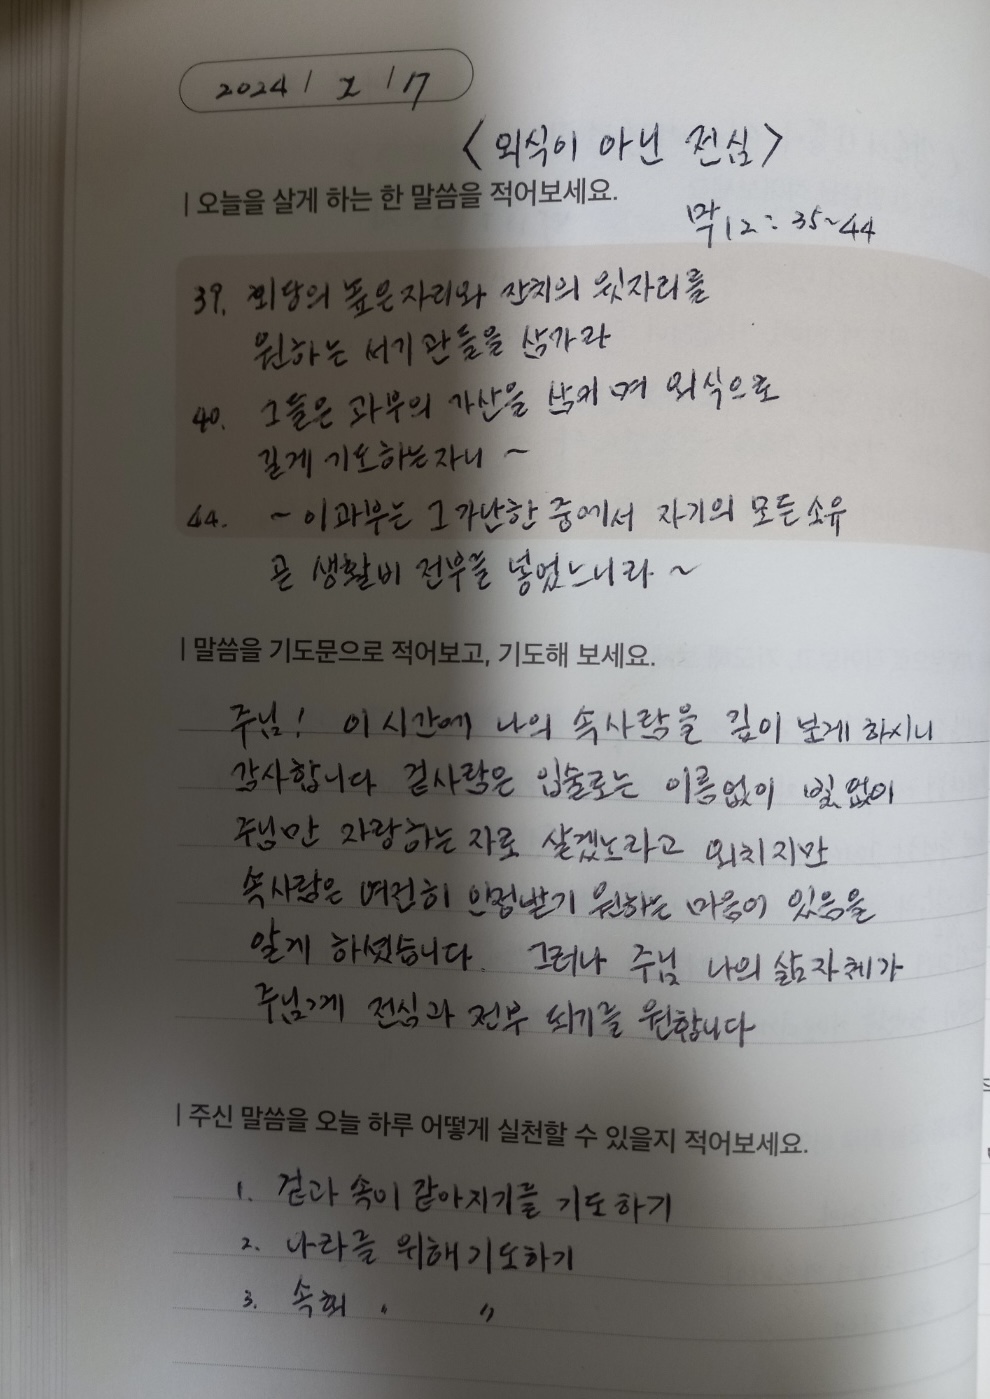 2024 / 2 / 17
<외식이 아닌 전심>
| 오늘을 살게 하는 한 말씀을 적어보세요.
막12: 35~44
39. 회당의 높은자리와 잔치의 윗자리를
원하는 서기관들을 삼가라
40. 그들은 과부의 가산을 삼키며 외식으로
길게 기도하는자니 ~
44. ~ 이과부는 그가난한 중에서 자기의 모든소유
곧 생활비 전부를 넣었느니라 ~
| 말씀을 기도문으로 적어보고, 기도해 보세요.
주님! 이시간에 나의 속사람을 깊이 보게 하시니
감사합니다 겉사람은 입술로는 이름없이 빛없이
주님만 자랑하는 자로 살겠노라고 외치지만
속사람은 여전히 인정받기 원하는 마음이 있음을
알게 하셨습니다. 그러나 주님 나의 삶자체가
주님께 전심과 전부 되기를 원합니다
| 주신 말씀을 오늘 하루 어떻게 실천할 수 있을지 적어보세요.
1. 겉과 속이 같아지기를 기도하기
2. 나라를 위해 기도하기
3. 속회 〃 〃